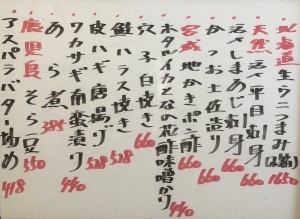 北海道 生ウニつまみ 1650
天然 活〆平目刺身 660
活〆しまあじ刺身 660
かつお土佐造り 660
宮城 地かきポン酢
ホタルイカと菜の花酢味噌がけ 440
穴子白焼き 660
鮭ハラス焼き 528
皮ハギ唐揚げ 528
ワカサギ南蛮漬り 440
あら煮 385
鹿児島 そら豆 550
アスパラバター炒め 418